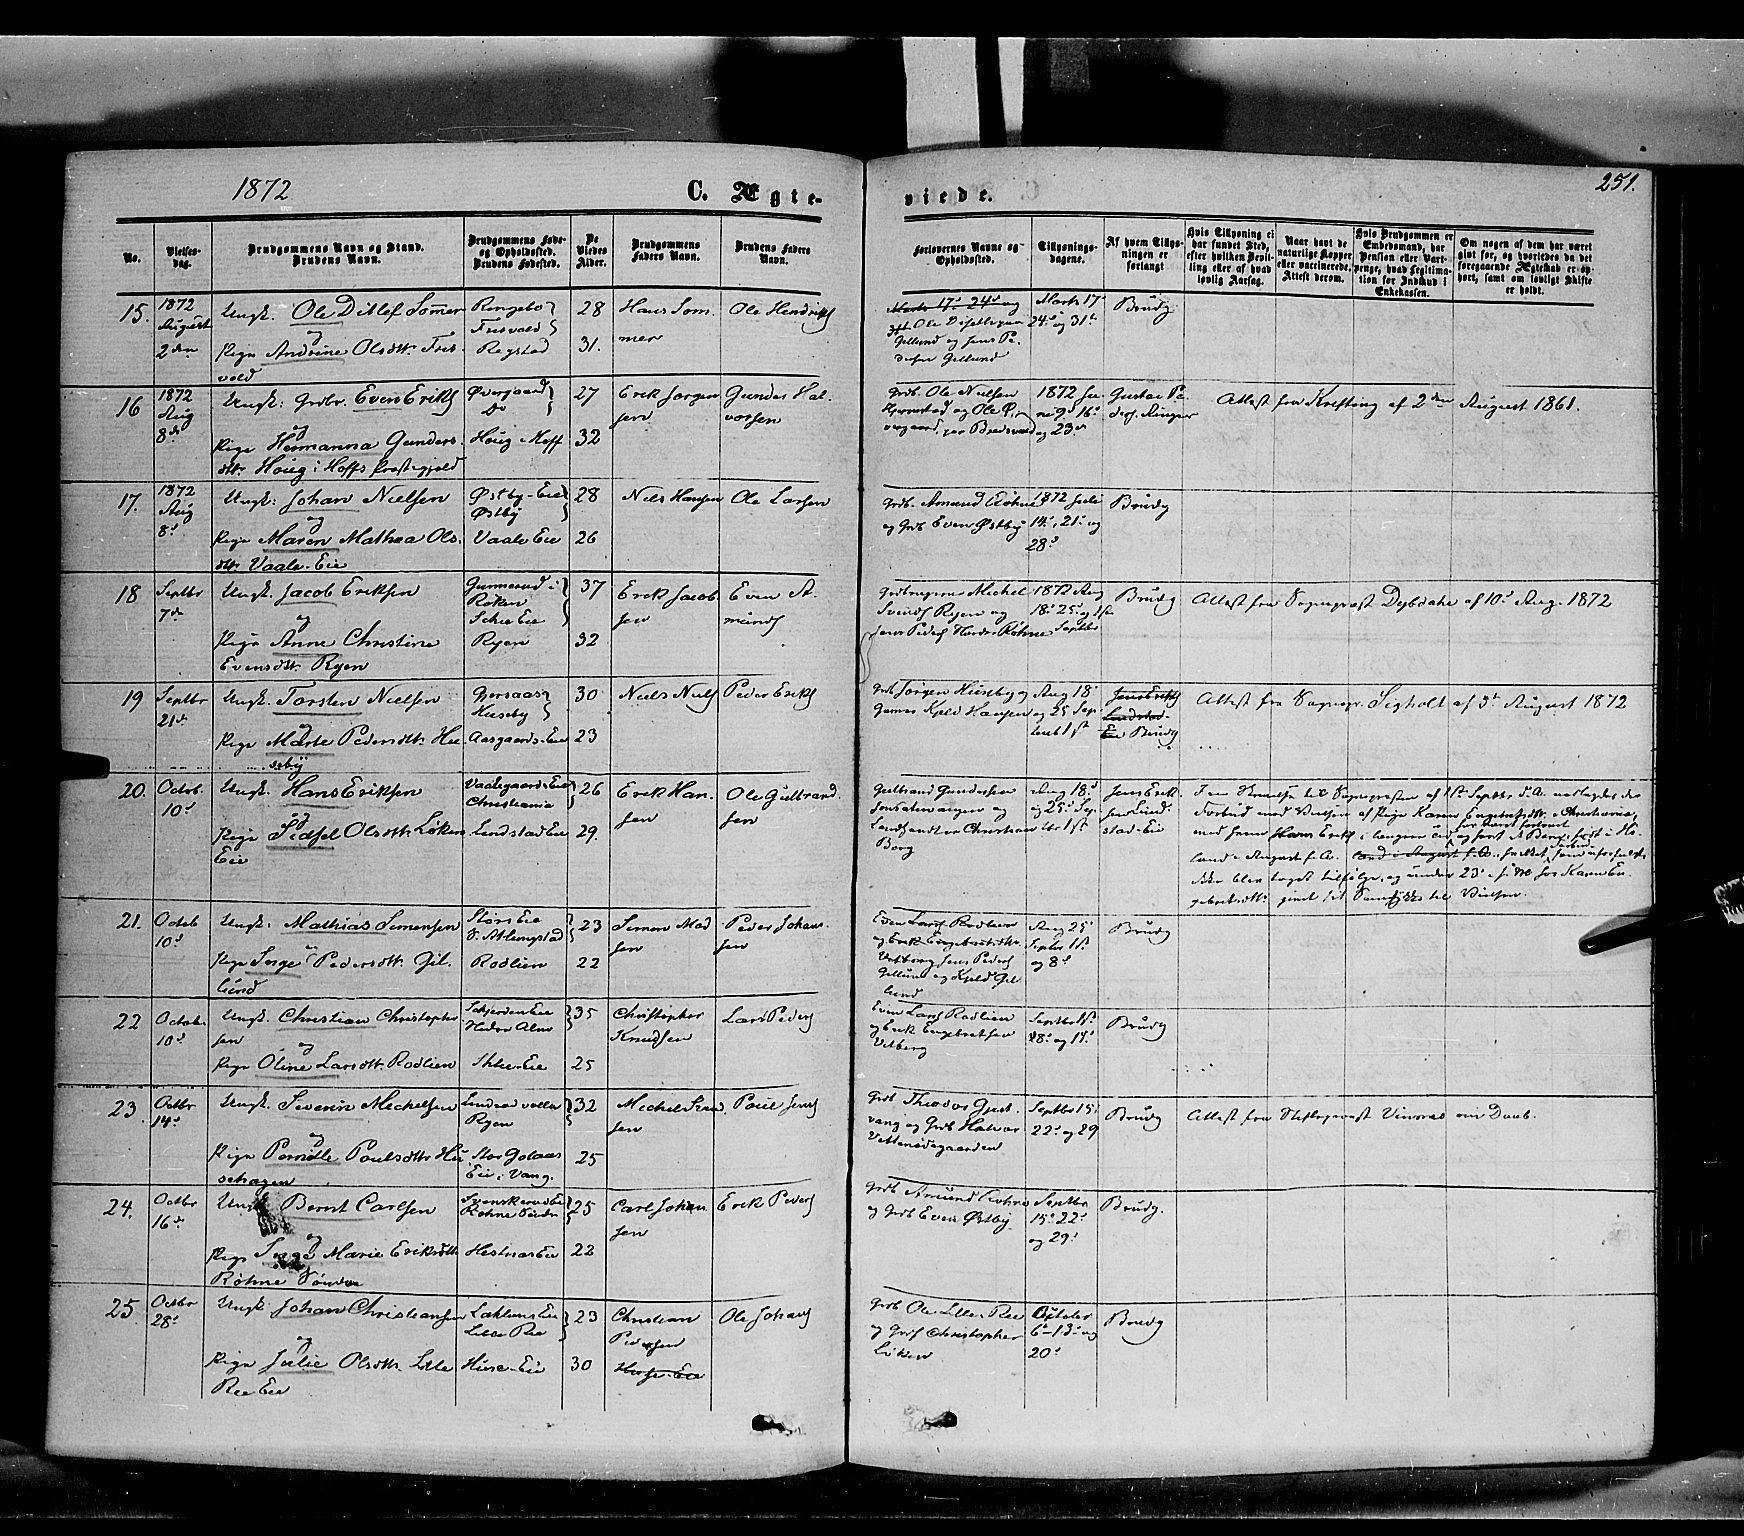 1872
C. Ægte-
viede.
251.
No.
Vielses-
dag.
Brudgommens Navn og Stand.
Brudens Navn.
Brudgommens Føde-
og Opholdssted.
Brudens Fødested.
De
Viedes
Alder.
Brudgommens
Faders Navn.
Brudens Faders
Navn.
Forlovernes Navne og
Opholdssted.
Tillysnings-
dagene.
Af hvem Tillys-
ningen er
forlangt
Hvis Tillysning ei
har fundet Sted,
efter hvilken Bevil-
ling eller af hvad
lovlig Aarsag.
Naar havt de
naturlige Kopper
eller vaccinerede,
Attest derom.
Hvis Brudgommen er
Embedsmand, har
Pension eller Vart-
penge, hvad Legitima-
tion for Indskud i
Enkekassen.
Om nogen af dem har været
givt for, og hvorledes da det
foregaaende Ægteskab er op-
hørt, samt om lovligt Skifte
er holdt.
15.
1872
August
2den
Ungk. Ole Ditlef Sømer
og
Pige Andrine Olsdtt. Fris
vold
Ringebo
Frisvold
Regstad
28
31.
Hans Som
mer
Ole Hendriks
Marts 17. 24. og
Ole
Gillund og Jens Pe
dersen Gillund
Marts 17.
24. og 31te
Brudg
16
1872
Aug
8de
Ungk: Grdbr. Even Eriks
og
Pige Hermanna Gunders
dtr. Houg i Hoffs Præstegjeld
Øvergaard
Do
Houg i Hoff
27
32
Erik Jorgen
sen
Gunder Hal
vorsen
Grdb. Ole Nielsen
og Ole
1872 Ju
ni 9. 16.
og 23de
Gustav Pe
ders. Ringer
Attest fra Krefting af 2den August 1861.
17.
1872
Aug
8.
Ungk: Johan Nielsen
og
Pige Maren Mathea Ols
dtr. Vaale-Eie
Østby-Eie
Østby
Vaale Eie
28
26
Niels Hansen
Ole Larsen
Grdb. Amund Røhne
og Grdb Even Østby
1872 Juli
14. 21. og
28.
Brudg
18
Septbr
7de
Ungk. Jacob Eriksen
og
Pige Anne Christine
Evensdtr. Ryen
Gunnerud i
Røken
Schie Eie
Ryen
37
32
Erik Jacob
sen
Even A
munds
Grdbrugerne Michel
Svends Ryen og
Jens Peders Hardor Røhne
1872 Aug
18. 25. og 1st
Septbr
Brudg
Attest fra Sognepræst Dybdahl af 10. Aug. 1872
19
Septbr
21de
Ungk. Torsten Nielsen
og
Pige Marte Pedersdtr. Hu
seby
Gjersaas
Huseby
Aasgaards-Eie
30
23
Niels Niels
Peder Eriks
Grdb Jørgen Huseby og
Gunner Kjeld Hansen
Aug 18.
og 25 Sep
tembr 1st
Jens Eriks
Lindstad
Eie Brudg
Attest fra Sognepr. Sigholt af 3de August 1872
20.
Octob.
10.
Ungk. Hans Eriksen
og
Pige Sidsel Olsdtr. Løken
Eie
Vaalegaards Eie
Christiania
Lindstad Eie
26
29.
Erik Han
sen
Ole Gulbrand
sen
Gulbrand Gundersen
og
Landhandler Christian
Berg
Aug 18.
og 25. Sep
tbr 1st
Jens Erik
sen Lind
stad-Eie
Sognepræsten af 1st Septbr d.A. nedlagdes der
Forbud mod Vielsen af Pige Karen Engebretsdtr. i Christiania,
Hans Eriks i længere Tid og født et Barn, født i Ho
land i August f.A.
ikke blev taget tilfølge, og under 23. f. M. har Karen En
gebretsdtr. givet sit Samtykke til Vielsen.
21.
Octob
10.
Ungk: Mathias Simensen
og
Pige Inge Pedersdtr. Gil
lund
Stors Eie
S. Atlungstad
Rodlien
23
22
Simen Mad
sen
Peder Johan
sen
Even Lars Rodlien
og Erik Engebretsdtr.
Vetberg, Jens Peders
Gillund og Kjeld Gil
lund
Aug 25.
Septbr 1st
og 8.
Brudg
22
Octob.
10.
Ungk. Christian Christopher
sen
og
Pige Oline Larsdtr. Rodlien
Hedre Alm
Skie-Eie
35
25
Christopher
Knudsen
Lars Peders
Even Lars Rodlien
og Erik Engebretsen
Vetberg
Septbr 1st
8. og 15.
Brudg
23
Octbr
14.
Ungk. Severin Michelsen
og
Pige Pernille Poulsdtr. Hu
sehagen
Ryen
Stor
Eie i Vang
32
25
Michel
sen
Poul Jens
Grdb Theodor Gjest
vang og Grdb Halvor
Septbr 15.
22. og 29
Brudg
Attest fra Stiftsprovst Vinsnes om Daab.
24.
Octbr
16de
Ungk Bernt Carlsen
og
Pige Inge Marie Eriksdtr.
Røhne Søndre
Svenskerud Eie
Røhne Søndre
Hestnæs Eie
25
22
Carl Johan
sen
Erik Peders
Grdb Amund Røhne
og Grdb Even Østby
Septbr
15. 22.
og 29.
Brudg.
25
Octbr
28.
Ungk. Johan Christiansen
og
Pige Julie Olsdtr. Lille
Ree Eie
Laklums Eie
Lille Ree
Huse-Eie
23
30
Christian
Pedersen
Huse-Eie
Ole Johans
Grdb Ole Lille Ree
og Grdb Christopher
Løken
October
6-13. og
20.
Brudg